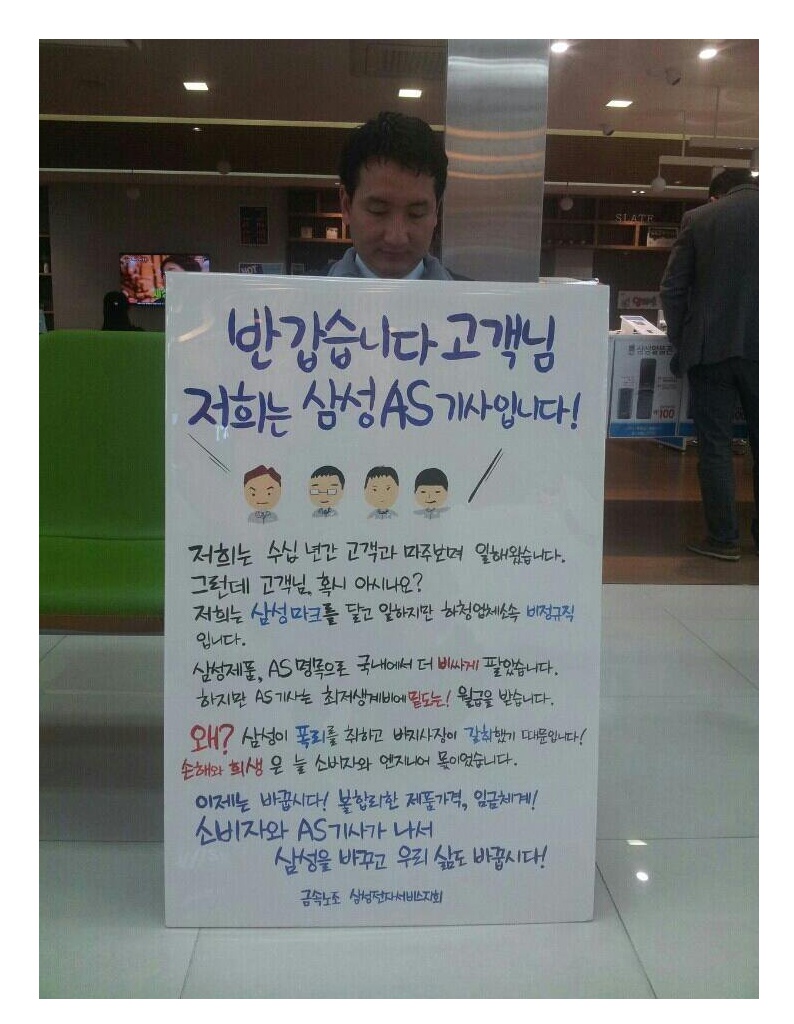 반갑습니다 고객님
저희는 삼성 AS 기사입니다!
저희는 수십 년간 고객과 마주보며 일해왔습니다.
그런데 고객님, 혹시 아시나요?
저희는 삼성마크를 달고 일하지만 하청업체소속 비정규직
입니다.
삼성제품, AS 명목으로 국내에서 더 비싸게 팔았습니다.
하지만 AS기사는 최저생계비에 밑도는! 월급을 받습니다.
왜? 삼성이 폭리를 취하고 바지사장이 갈취했기 때문입니다!
손해와 희생은 늘 소비자와 엔지니어 몫이었습니다.
이제는 바꿉시다! 불합리한 제품가격, 임금체계!
소비자와 AS기사가 나서
삼성을 바꾸고 우리 삶도 바꿉시다!
금속노조 삼성전자서비스지회
SLATE
삼성알뜰폰
100